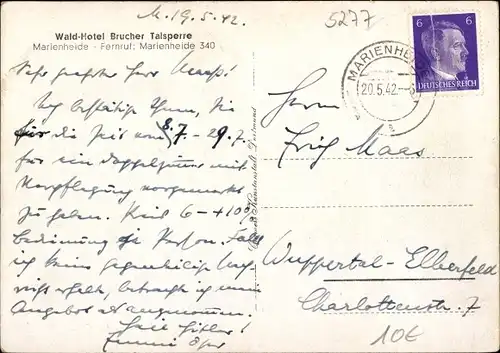 M. 19.5.42.
5277
Wald-Hotel Brucher Talsperre
Marienheide - Fernruf: Marienheide 340
Sehr geehrter Herr Maas!
Ich bestätige Ihnen, Sie
für die Zeit vom 8.7. - 29.7.
für ein Doppelzimmer mit
Verpflegung vorgemerkt
zu haben. 6 - + 10%
Bedienung Person. Falls
ich keine gegenteilige
nicht erhalte, betrachte ich mein
Angebot als angenommen.
Heil Hitler!
MARIENHEIDE
20.5.42
6 6
DEUTSCHES REICH
Herrn
Erich Maas
Wuppertal-Elberfeld
Charlottenstr. 7
10€